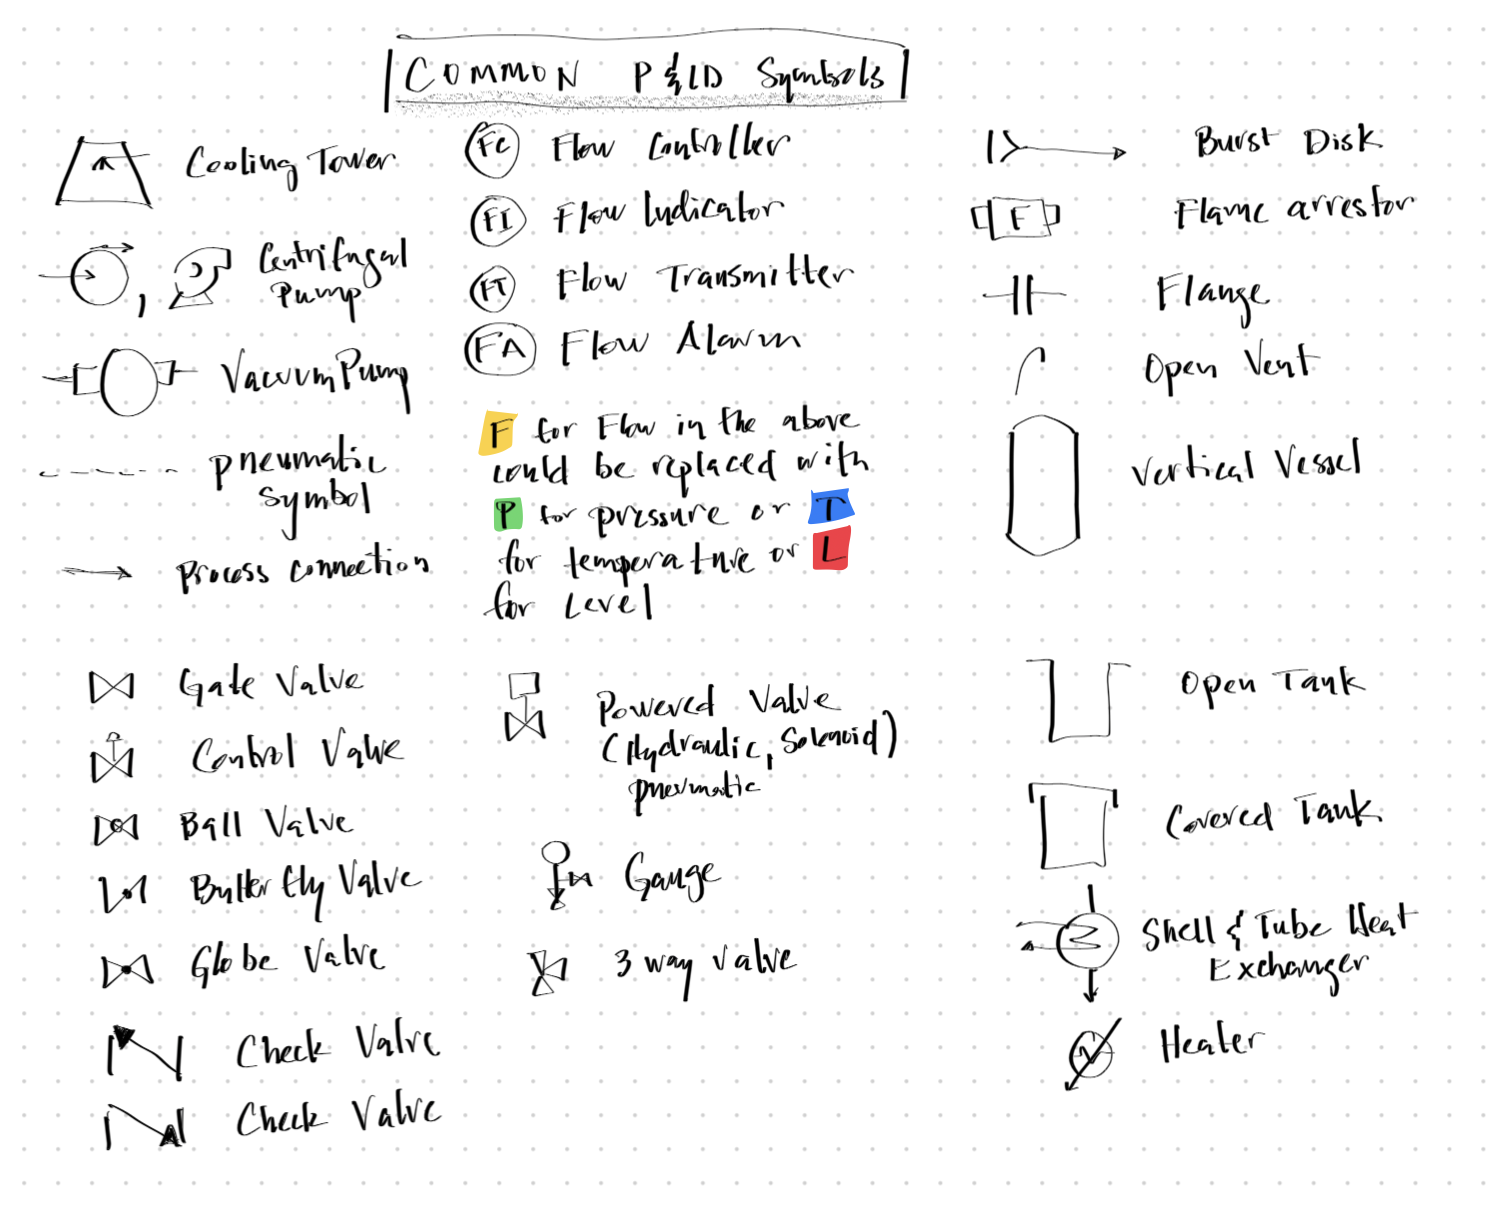 COMMON P&ID Symbols
Cooling Tower
Centrifugal
Pump
,
Vacuum Pump
pneumatic
symbol
Process connection
FC Flow Controller
FI Flow Indicator
FT Flow Transmitter
FA Flow Alarm
F for Flow in the above
could be replaced with
P for pressure or T
for temperature or L
for Level
Burst Disk
F Flame arrestor
Flange
Open Vent
Vertical Vessel
Gate Valve
Control Valve
Ball Valve
Butterfly Valve
Globe Valve
Check Valve
Check Valve
Powered Valve
(Hydraulic, Solenoid)
pneumatic
Gauge
3 way valve
Open Tank
Covered Tank
Shell & Tube Heat
Exchanger
Heater